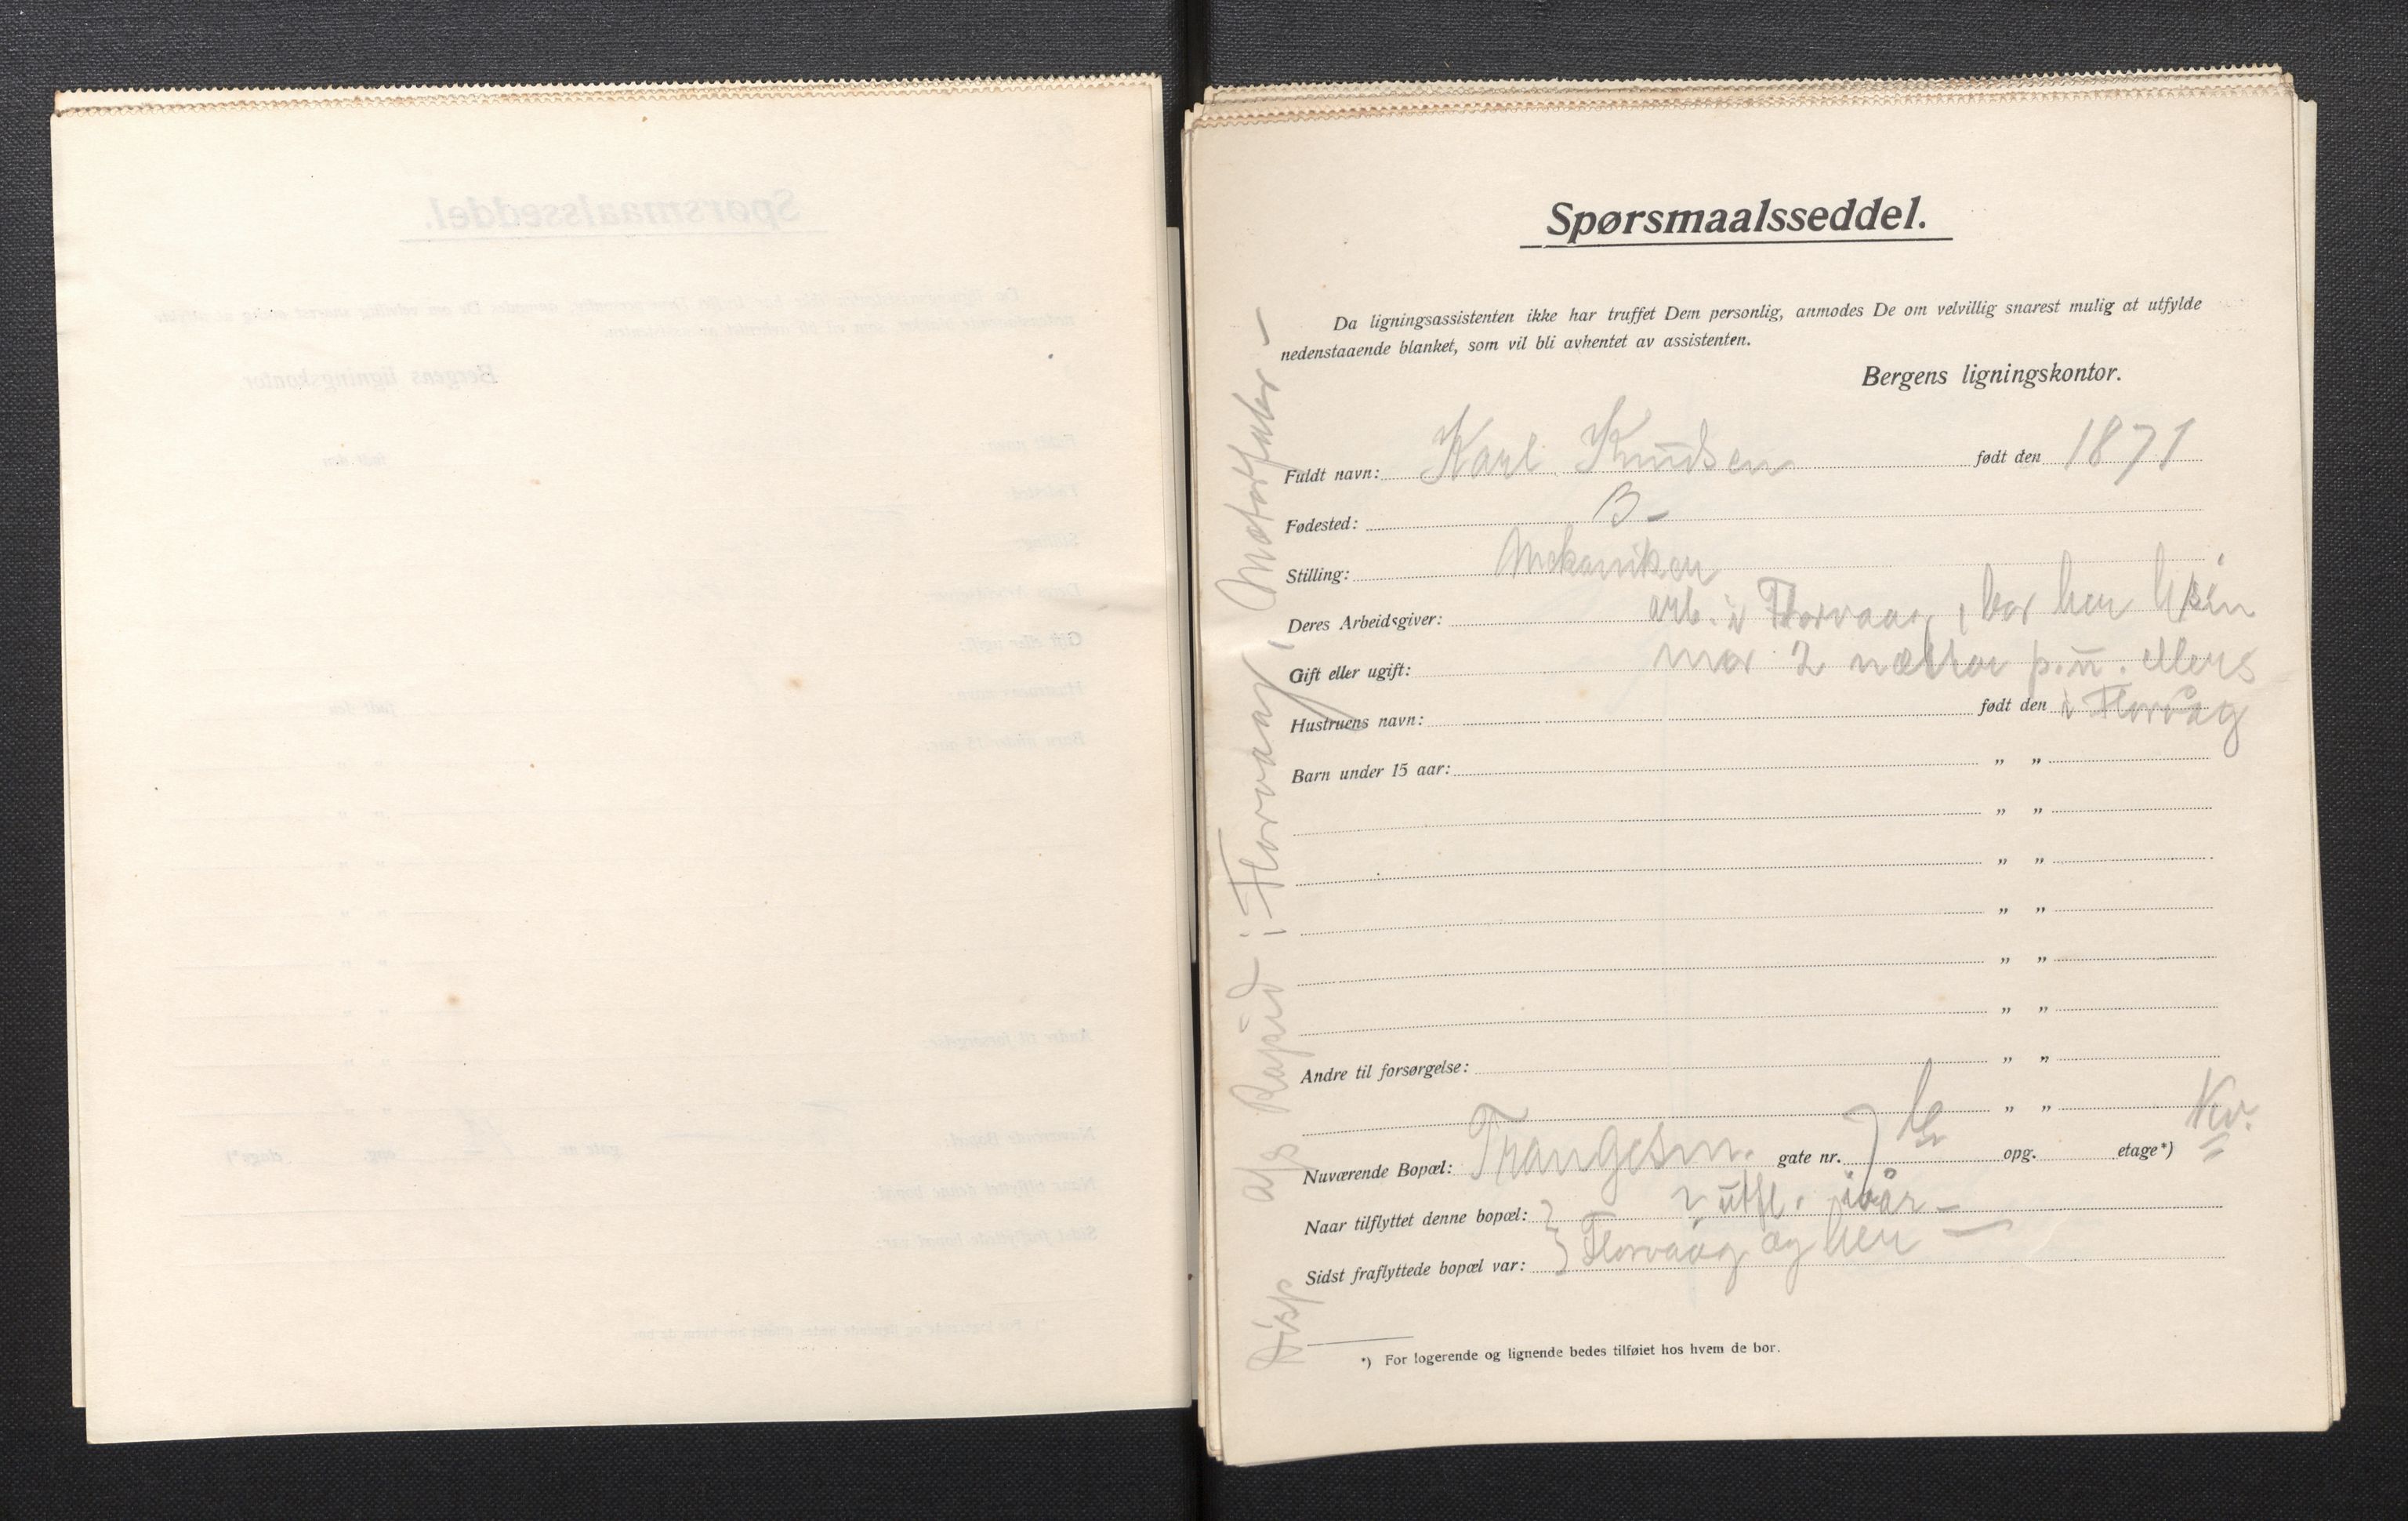 Spørsmaalsseddel.
Da ligningsassistenten ikke har truffet Dem personlig, anmodes De om velvillig snarest mulig at utfylde
nedenstaaende blanket, som vil bli avhentet av assistenten.
Bergens ligningskontor.
Fuldt navn: Karl Knudsen født den 1871
Fødested: B-
Stilling: Mekaniker
Deres Arbeidsgiver: arb. i Florvaag, bor her h/sin
Gift eller ugift: mor 2 nætter p.u. ellers
Hustruens navn: født den i Florvåg
Barn under 15 aar: „ „
„ „
„ „
„ „
„ „
„ „
Andre til forsørgelse: „ „
„ „ Kv.
Nuværende Bopæl: Trangesm. gate nr. 7 b opg. etage*)
Naar tilflyttet denne bopæl: utfl. ivår -
Sidst fraflyttede bopæl var: Florvaag og her -
*) For logerende og lignende bedes tilføiet hos hvem de bor.
Disp a/s Rapid i Florvaag, Motorfabr -